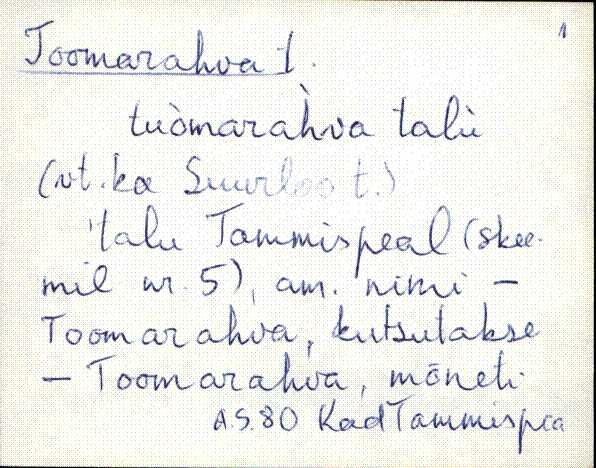 1
Toomarahva t.
tuòmarahva talù
(vt. ka Suurloo t.)
'talu Tammispeal (skee-
mil nr. 5), am. nimi –
Toomarahva, kutsutakse
– Toomarahva, mõneti
A.S. 80 Kad Tammispea